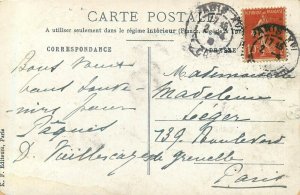 CARTE POSTALE
A utiliser seulement dans le régime intérieur (France, Algérie et Tunisie)
CORRESPONDANCE
ADRESSE
PARIS
Bons vœux
pour
Pâques
D Vieillescazes
Mademoiselle
Madeleine
Léger
139 Boulevard
de Grenelle
Paris
K. F. Editeurs, Paris